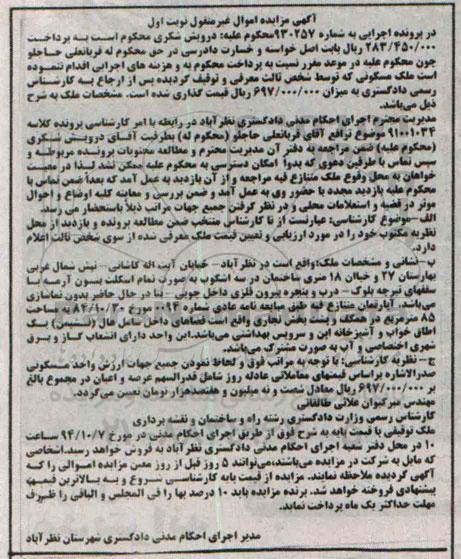 آگهی مزایده اموال غیرمنقول نوبت اول
در پرونده اجرایی به شماره ۹۳۰۲۵۷محکوم علیه: درویش شکری محکوم است به پرداخت
۲۸۳/۴۵۰/۰۰۰ ریال بابت اصل خواسته و خسارت دادرسی در حق محکوم له قربانعلی حاجلو
چون محکوم علیه در موعد مقرر نسبت به پرداخت محکوم به و هزینه های اجرایی اقدام ننموده
است ملک مسکونی که توسط شخص ثالث معرفی و توقیف گردیده پس از ارجاع به کارشناس
رسمی دادگستری به میزان ۶۹۷/۰۰۰/۰۰۰ ریال قیمت گذاری شده است. مشخصات ملک به شرح
ذیل می‌باشد.
مدیریت محترم اجرای احکام مدنی دادگستری نظرآباد در رابطه با امر کارشناسی پرونده کلاسه
۹۱۰۰۱۰۳۴ موضوع ترافع آقای قربانعلی حاجلو (محکوم له) بطرفیت آقـای درویـش شـکری
(محکوم علیه) ضمن مراجعه به دفتر آن مدیریت محترم و مطالعه محتویات پرونـده مربوطـه و
سپس تماس با طرفین دعوی که بدواً امکان دسترسی به محکوم علیه ممکن نشد لـذا در معیـت
خواهان به محل وقوع ملک متنازع فیه مراجعه و از آن بازدید به عمل آمد که بعداً ضمن تماس با
محکوم علیه بازدید مجدد با حضور وی به عمل آمد و ضمن بررسی و معاینه کلیه اوضاع و احوال
موثر در قضیه و استعلامات محلی و در نظر گرفتن جمیع جهات مراتب ذیلاً باستحضار می رسد.
الف-موضوع کارشناسی: عبارتست از تا کارشناس منتخب ضمن مطالعه پرونده و بازدید از محل
نظریه مکتوب خود را در مورد ارزیابی و تعیین قیمت ملک معرفی شده از سوی شخص ثالث اعلام
دارد.
ب-نشانی و مشخصات ملک:واقع است در نظرآباد- خیابان آیت اله کاشانی- نبش شمال غربی
بهارستان ۲۷ و خیابان ۱۸ متری ساختمان در سه اشکوب به صورت تمام اسکلت بتـون آرمـه بـا
سقفهای تیرچه بلوک- درب و پنجره بیرون فلزی داخل چوبی -بنا در حال حاضر بدون نماسازی
می‌باشد. آپارتمان متنازع فیه طبق مبایعه نامه عادی شماره ۶۹۴ مورخ ۸۴/۱۰/۳۰ بـه متـراژ
۸۵ مترمربع در همکف و پشت بخش تجاری واقع است فضاهای داخل شامل هال (نشیمن) یـک
اطاق خواب و آشپزخانه اپن و سرویس بهداشتی می‌باشد.این واحد دارای انشعاب گـاز و بـرق
شهری اختصاصی و آب به صورت مشترک می‌باشد.
ج- نظریه کارشناسی: با توجه به مراتب فوق و لحاظ نمودن جمیع جهات ارزش واحـد مسـکونی
صدرالاشاره براساس قیمتهای معاملاتی عادله روز شامل قدرالسهم عرصه و اعیان در مجموع بالغ
بر ۶۹۷/۰۰۰/۰۰۰ریال معادل شصت و نه میلیون و هفتصدهزار تومان تعیین می‌گردد.
مهندس میرکیوان علائی طالقانی
کارشناس رسمی وزارت دادگستری رشته راه و ساختمان و نقشه برداری
ملک توقیفی با قیمت پایه به شرح فوق از طریق اجرای احکام مدنی در مورخ ۹۴/۱۰/۷ ساعت
۱۰ در محل دفتر شعبه اجرای احکام مدنی دادگستری نظرآباد به فروش خواهد رسید.اشخاصی
که مایل به شرکت در مزایده می‌باشند،می‌توانند ۵ روز قبل از روز معین مزایده امـوالی را کـه
آگهی گردیده ملاحظه نمایند. مزایده از قیمت پایه کارشناسـی شـروع و بـه بـالاترین قیمـت
پیشنهادی فروخته خواهد شد. برنده مزایده باید ۱۰ درصد بها را فی المجلس و الباقی را ظـرف
مهلت حداکثر یک ماه پرداخت نماید.
مدیر اجرای احکام مدنی دادگستری شهرستان نظرآباد